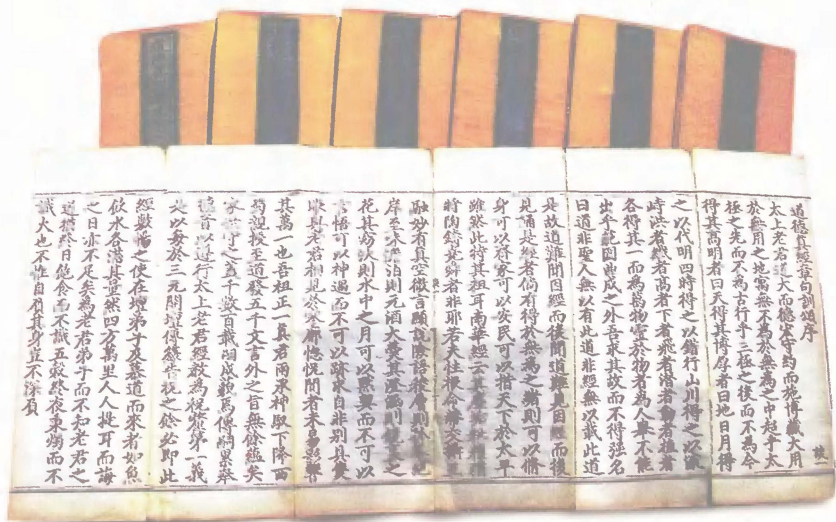 道德真經章句訓頌序
太上老君道大而德宏守約而施博藏大用
於無用之地寓無不為於無為之中超乎太
極之先而不為古行乎三極之後而不為今
得其高明者曰天得其博厚者曰地日月得
之以代明四時得之以錯行山川得之以
峙洪者纖者高者下者飛者潛者動者植者
各得其一而為萬物靈於物者為人舉不能
出乎範圍曲成之外吾求其故而不得強名
曰道非聖人無以有此道非經無以載此道
是故道難聞因經而後聞道難見因經而後
見誦是經者倘有得於無為之緒則可以脩
身可以齊家可以安民可以措天下於太平
雖然此特其粗耳南華經云其
時
融妙有真空微言顯說隱語後
岸至未
花其妙欤則水中之月可以默契而不可以
言悟可以神遇而不可以跡求自非別具隻
眼與老君相見於象之罅惚恍間者未易影響
其萬一也吾祖正一真君兩承神馭下降西
蜀親授至道發五千文言外之旨無餘蘊矣
家世守之蓋千數百載嗣成藐焉傳嗣累奉
德音以遵行太上老君經教為祝釐第一義
是以每於三元開壇傳籙告祝之餘必即此
經敷暢之使在壇弟子及慕道而來者如魚
飲水各滿其量然四方萬里人人提耳而誨
之日亦不足矣為老君弟子而不知老君之
道猶終日飽食而不識五穀終夜秉燭而不
識火也不惟自負其身豈不深負